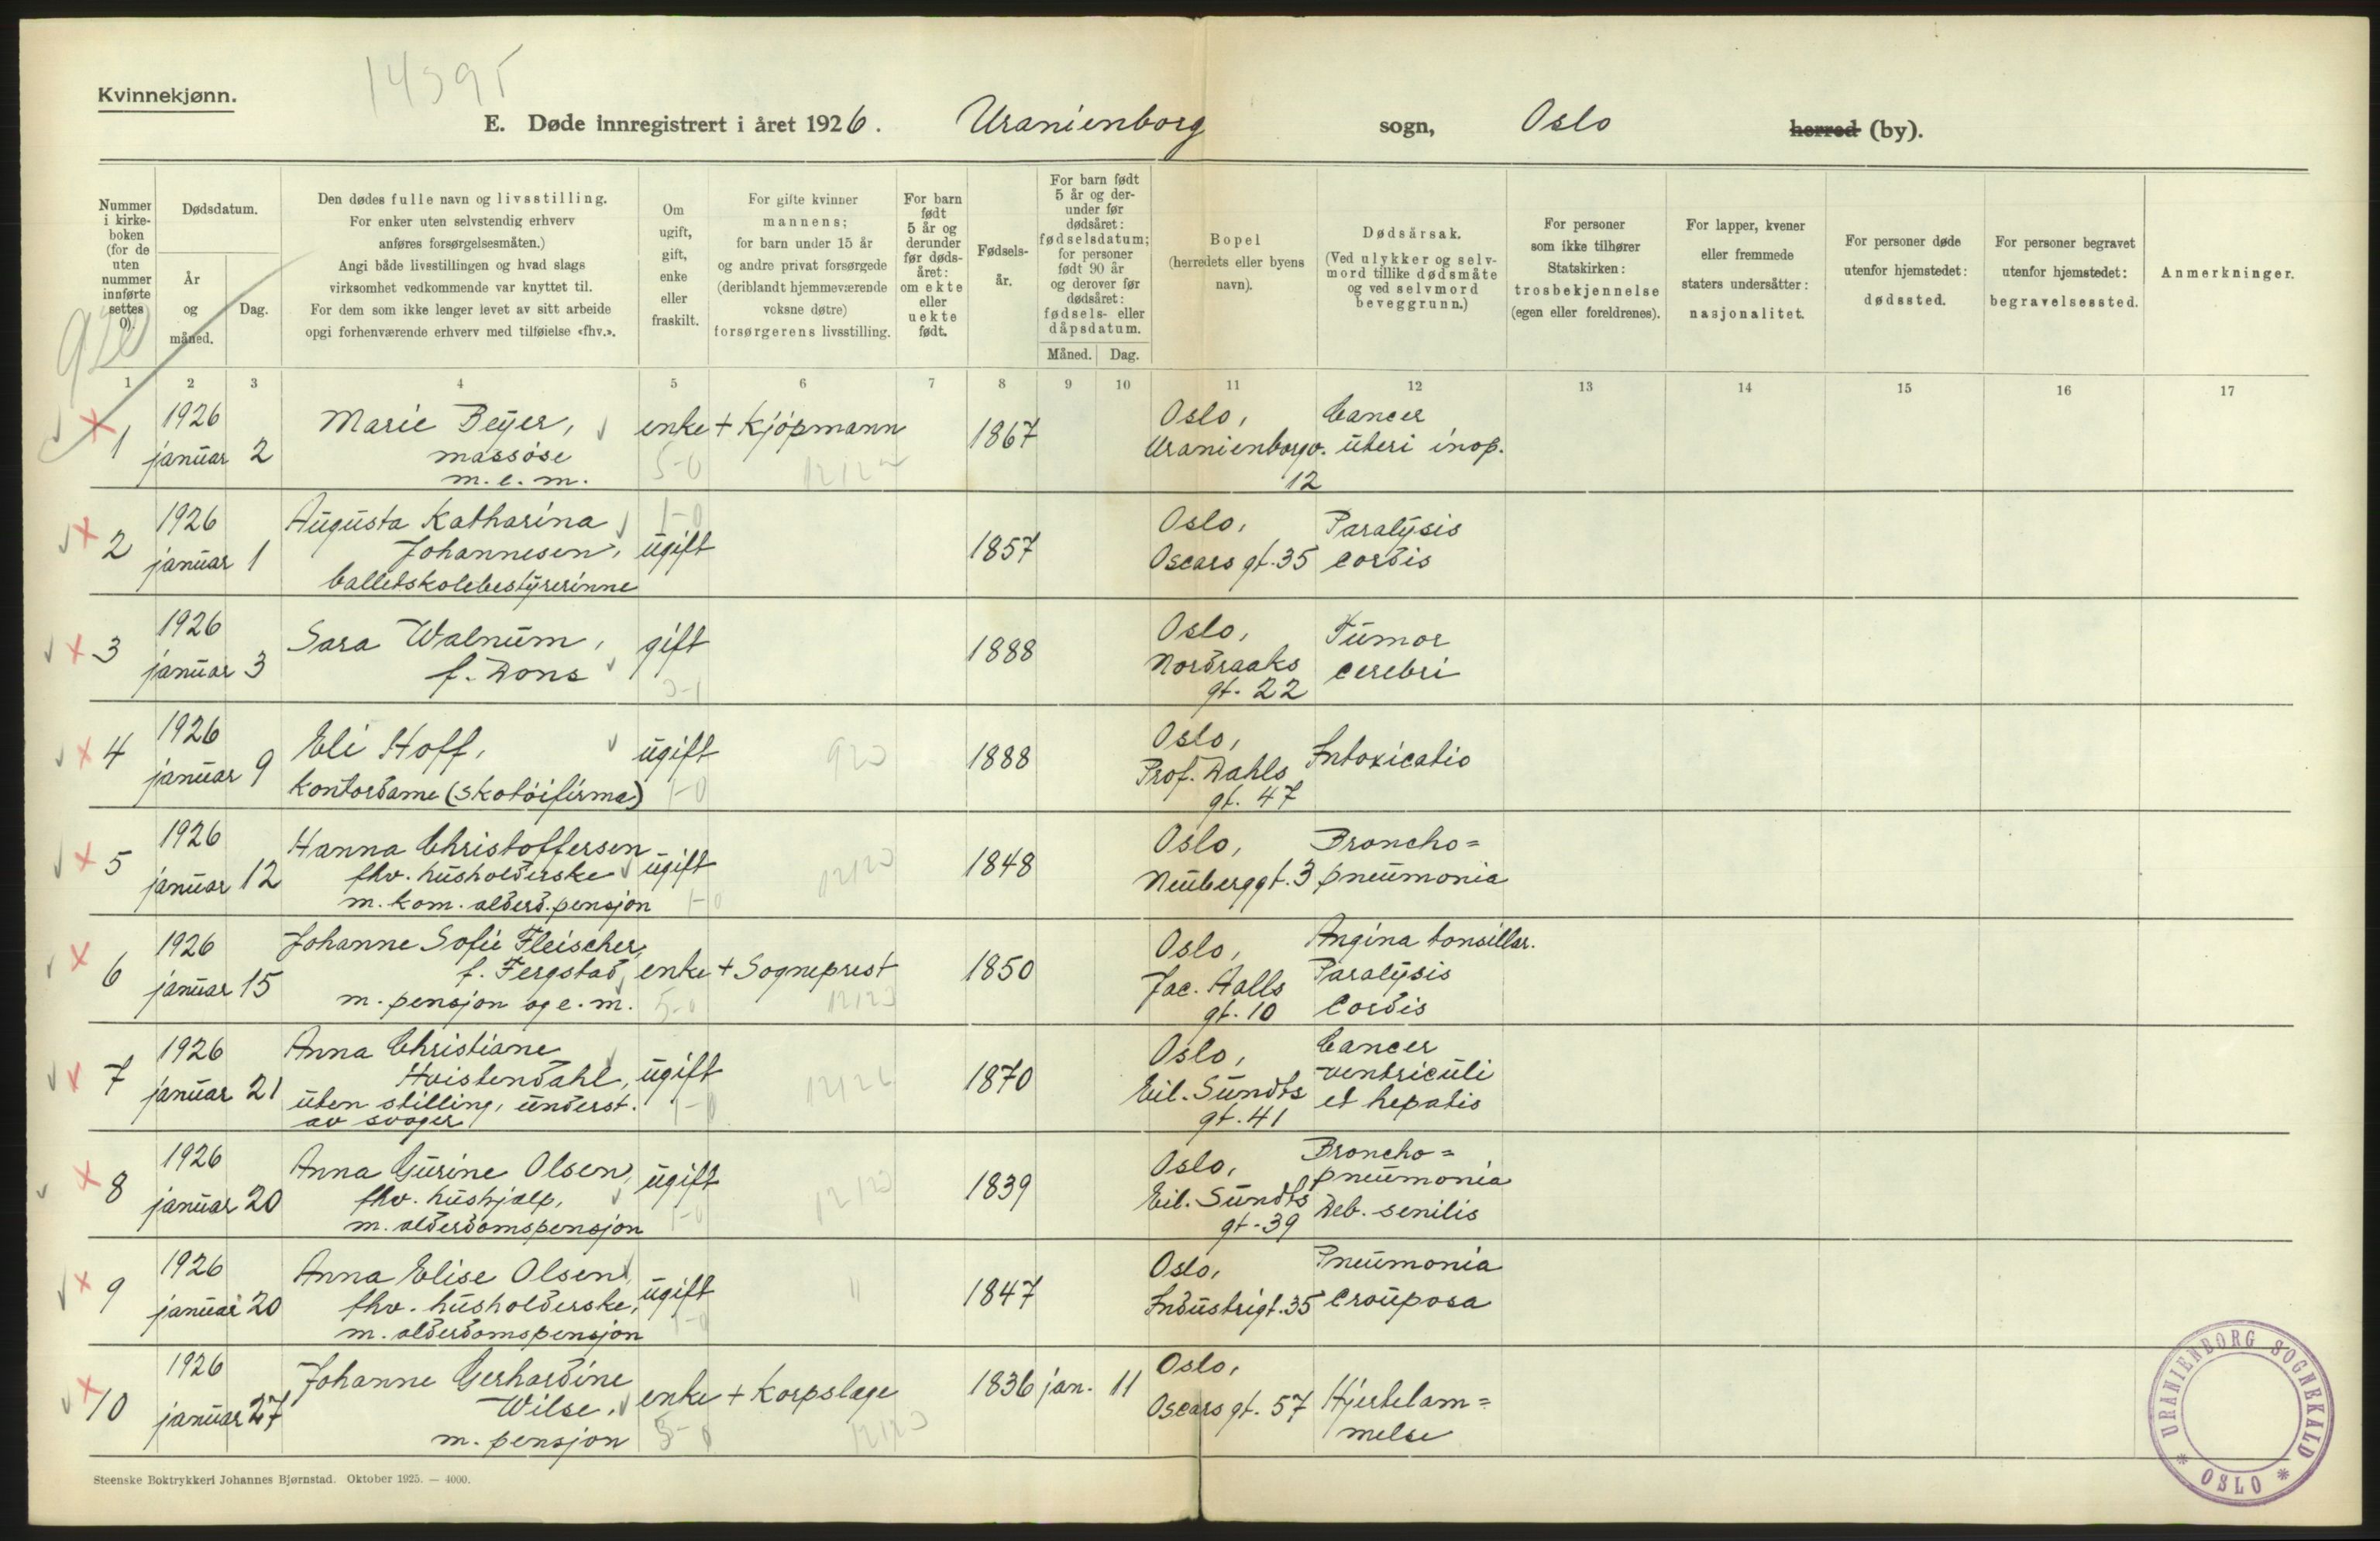 14395
Kvinnekjønn.
E. Døde innregistrert i året 1926. Uranienborg sogn, Oslo herred (by).
Nummer i kirkeboken (for de uten nummer innførte settes 0).
Dødsdatum.
År og måned.
Dag.
Den dødes fulle navn og livsstilling.
For enker uten selvstendig erhverv
anføres forsørgelsesmåten.)
Angi både livsstillingen og hvad slags
virksomhet vedkommende var knyttet til.
For dem som ikke lenger levet av sitt arbeide
opgi forhenværende erhverv med tilføielse «fhv.».
Om ugift, gift, enke eller fraskilt.
For gifte kvinner
mannens;
for barn under 15 år
og andre privat forsørgede
(deriblandt hjemmeværende
voksne døtre)
forsørgerens livsstilling.
For barn født 5 år og derunder før dødsåret: om ekte eller uekte født.
Fødselsår.
For barn født 5 år og derunder før dødsåret: fødselsdatum; for personer født 90 år og derover før dødsåret: fødsels- eller dåpsdatum.
Måned. Dag.
Bopel
(herredets eller byens
navn).
Dødsårsak.
(Ved ulykker og selv-
mord tillike dødsmåte
og ved selvmord
beveggrunn.)
For personer
som ikke tilhører
Statskirken:
trosbekjennelse
(egen eller foreldrenes).
For lapper, kvener
eller fremmede
staters undersåtter:
nasjonalitet.
For personer døde
utenfor hjemstedet:
dødssted.
For personer begravet
utenfor hjemstedet:
begravelsessted.
Anmerkninger.
920
1 2 3 4 5 6 7 8 9 10 11 12 13 14 15 16 17
1 1926 januar 2 Marie Beyer, massøse m. e. m. enke + Kjøpmann 1867 Oslo, Uranienborgv. 12 Cancer uteri inop.
5-0
2 1926 januar 1 Augusta Katharina Johannesen, balletskolebestyrerinne ugift 1857 Oslo, Oscars gt. 35 Paralysis cordis
1-0
3 1926 januar 3 Sara Walnum, f. Dons gift 1888 Oslo, Nordraaks gt. 22 Tumor cerebri
4 1926 januar 9 Eli Hoff, kontordame (skotøifirma) ugift 1888 Oslo, Prof. Dahls gt. 47 Intoxicatio
1-0 920
5 1926 januar 12 Hanna Christoffersen fhv. husholderske m. kom. alderd. pensjon ugift 1848 Oslo, Neuberggt. 3 Broncho=pneumonia
1-0 12123
6 1926 januar 15 Johanne Sofie Fleischer, f. Fergstad, m. pensjon og e. m. enke + Sogneprest 1850 Oslo, Jac. Aalls gt. 10 Angina tonsillar. Paralysis Cordis
5-0 12123
7 1926 januar 21 Anna Christiane Hvistendahl, uten stilling, underst. av svoger ugift 1870 Oslo, Eil. Sundts gt. 41 Cancer ventriculi et hepatis
1-0
8 1926 januar 20 Anna Gurine Olsen, fhv. hushjælp, m. alderdomspensjon ugift 1839 Oslo, Eil. Sundts gt. 39 Broncho=pneumonia Deb. senilis
1-0 12123
9 1926 januar 20 Anna Elise Olsen, fhv. husholderske, m. alderdomspensjon ugift 1847 Oslo, Industrigt. 35 Pneumonia Crouposa
1-0 "
10 1926 januar 27 Johanne Gerhardine Wilse, m. pensjon enke + Korpslæge 1836 jan. 11 Oslo, Oscars gt. 57 Hjertelam=melse
5-0 12123
Steenske Boktrykkeri Johannes Bjørnstad. Oktober 1925. — 4000.
URANIENBORG SOGNEKALD * OSLO *